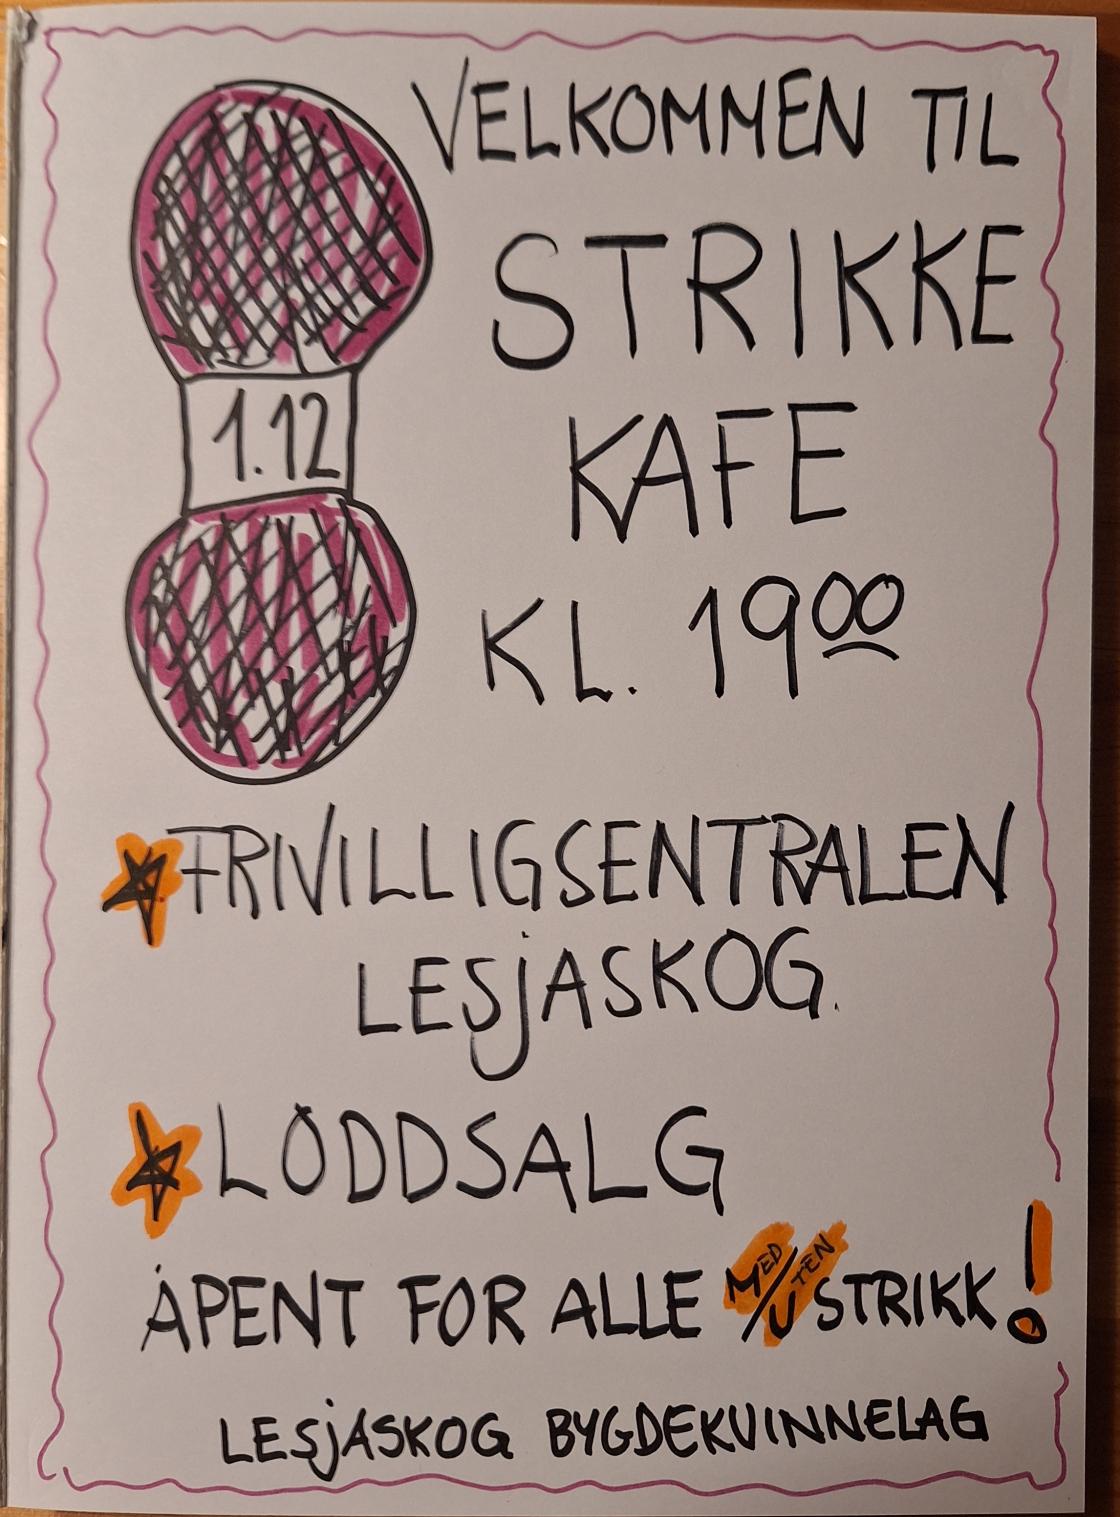 VELKOMMEN TIL
STRIKKE
KAFE
1.12
KL. 19<sup>00</sup>
FRIVILLIGSENTRALEN
LESJASKOG.
LODDSALG
ÅPENT FOR ALLE MED/UTEN STRIKK!
LESJASKOG BYGDEKVINNELAG